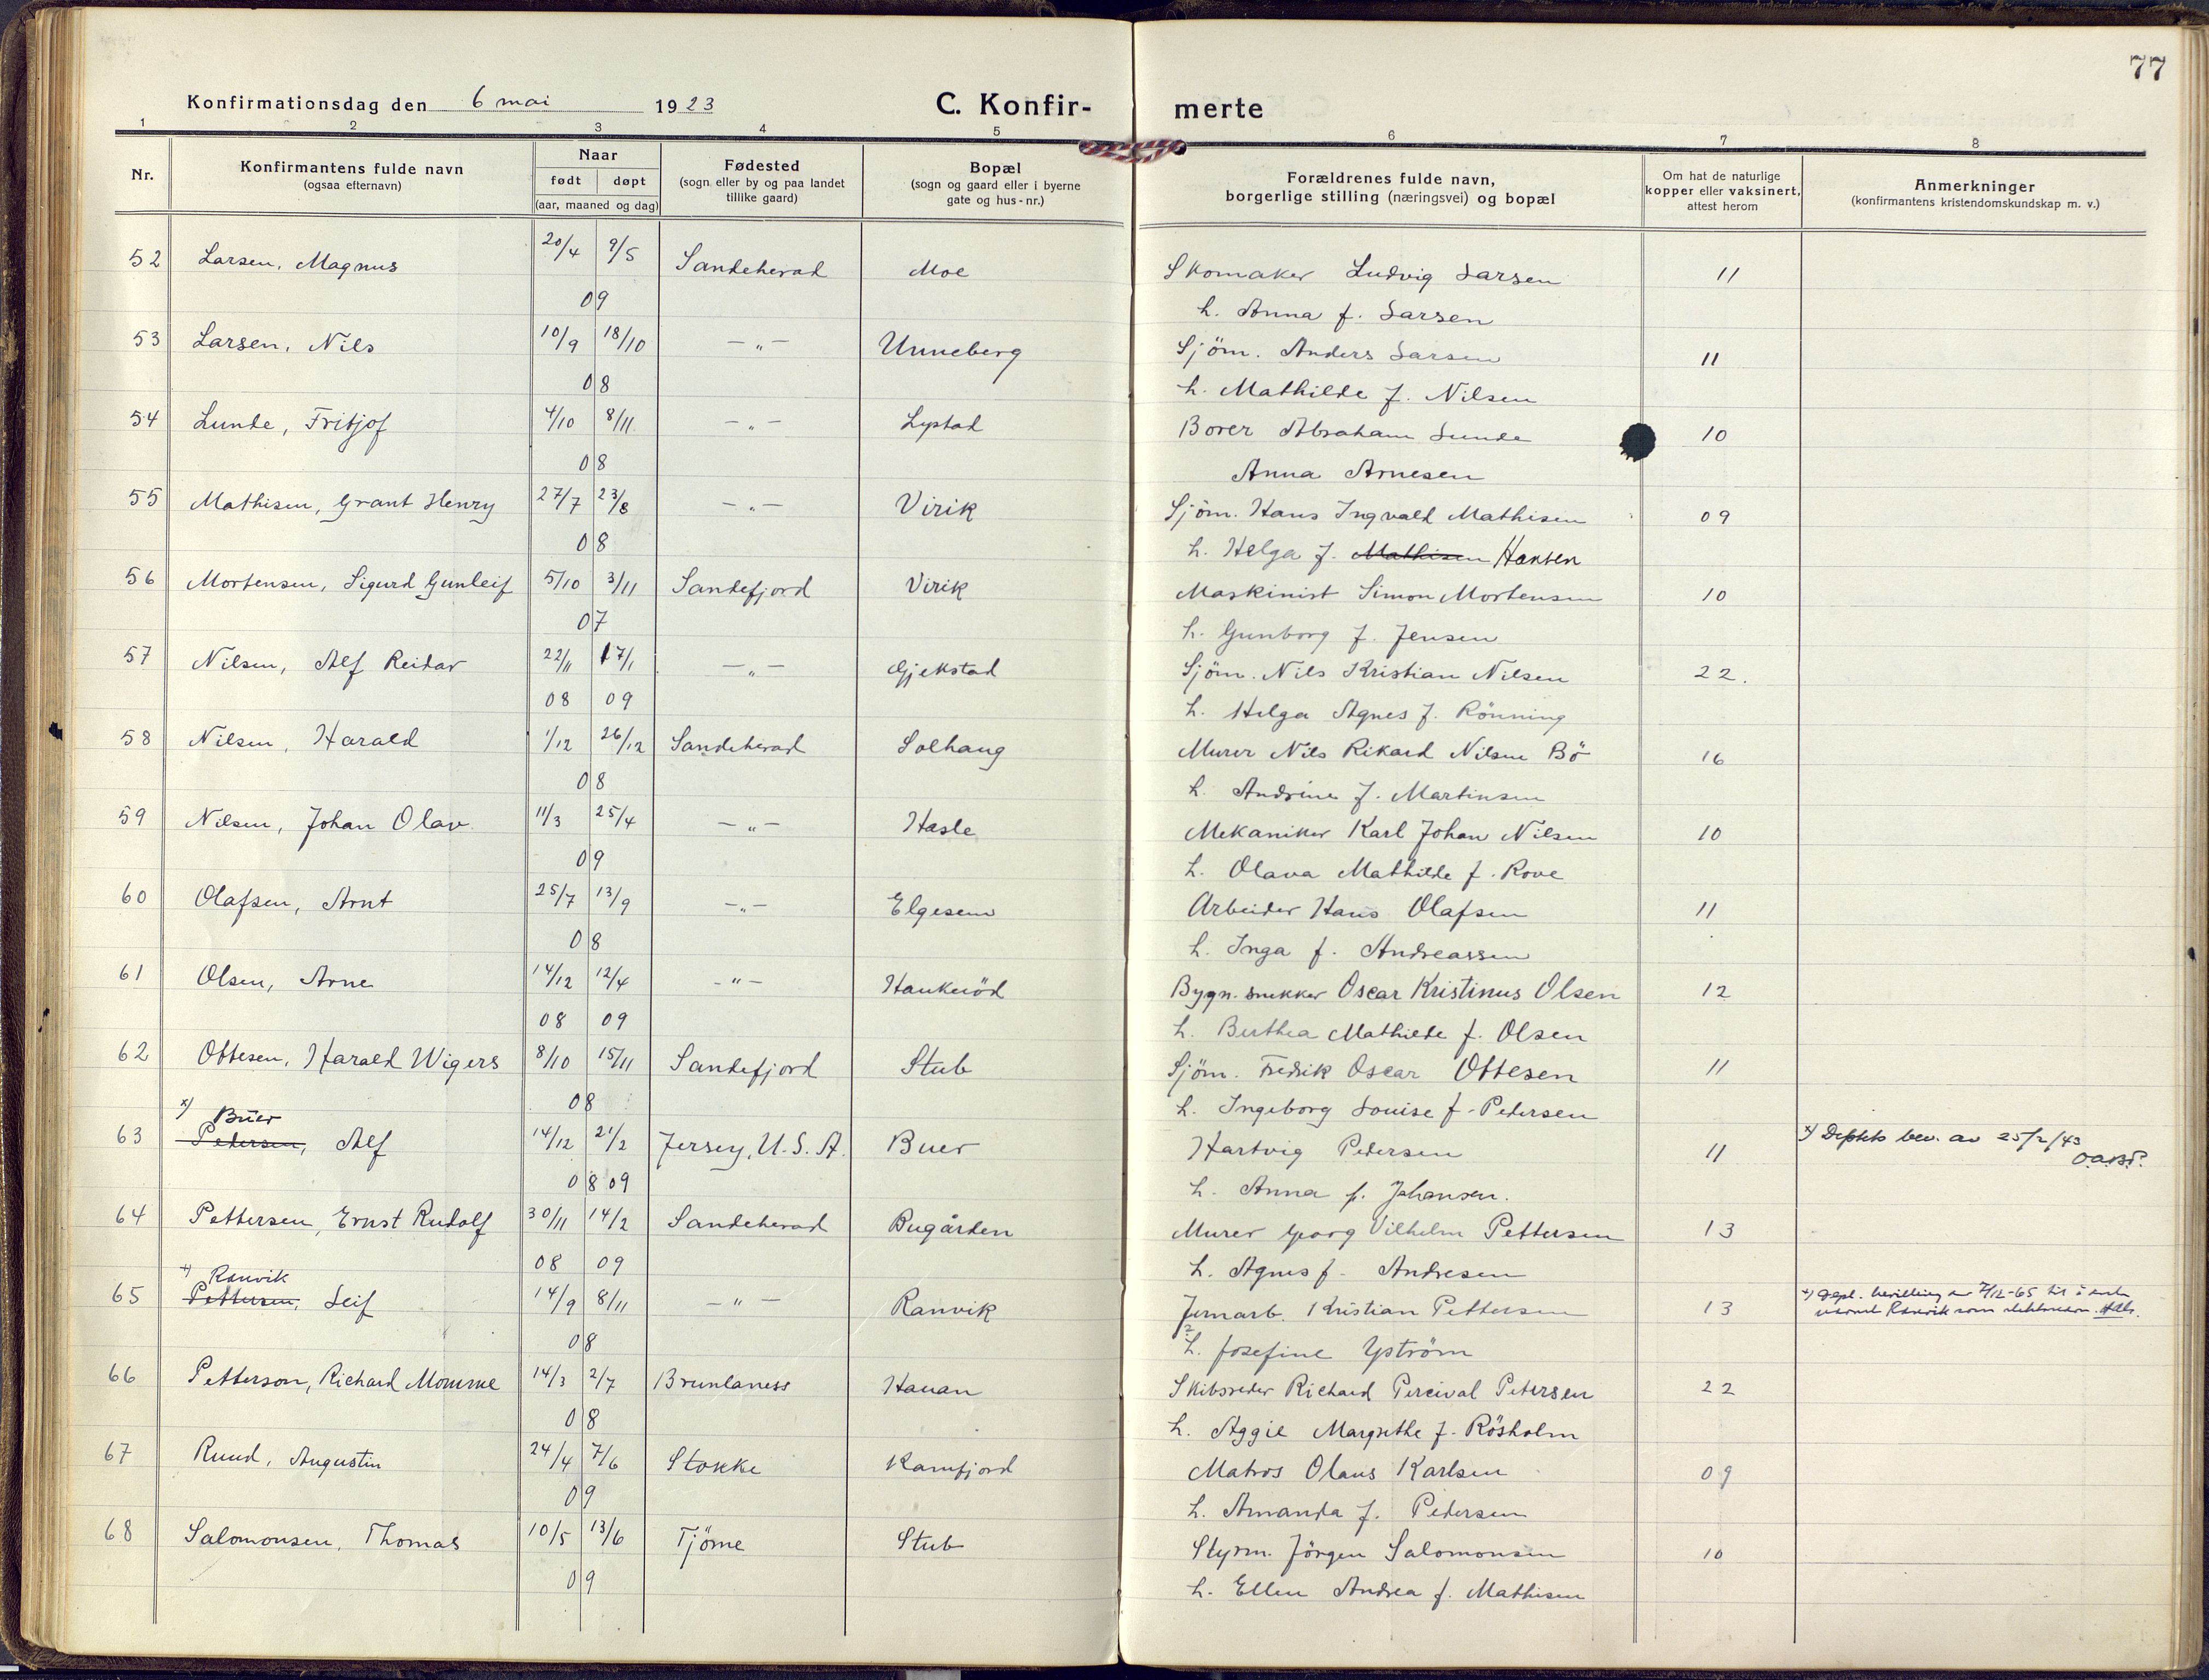 77
Konfirmationsdag den 6 mai 1923
C. Konfir-merte
1 2 3 4 5 6 7 8
Nr.
Konfirmantens fulde navn
(ogsaa efternavn)
Naar
født døpt
(aar, maaned og dag)
Fødested
(sogn eller by og paa landet
tillike gaard)
Bopæl
(sogn og gaard eller i byerne
gate og hus-nr.)
Forældrenes fulde navn,
borgerlige stilling (næringsvei) og bopæl
Om hat de naturlige
kopper eller vaksinert,
attest herom
Anmerkninger
(konfirmantens kristendomskundskap m. v.)
52 Larsen, Magnus 20/4 9/5 Sandeherad Moe Skomaker Ludvig Larsen 11
09 h. Anna f. Larsen
53 Larsen, Nils 10/9 18/10 —„— Unneberg Sjöm. Anders Larsen 11
08 h. Mathilde f. Nilsen
54 Lunde, Fritjof 4/10 8/11 —„— Lystad Borer Abraham Lunde 10
08 Anna Arnesen
55 Mathisen, Grant Henry 27/7 23/8 —„— Virik Sjöm. Hans Ingvald Mathisen 09
08 h. Helga f. Mathisen Hansen
56 Mortensen, Sigurd Gunleif 5/10 3/11 Sandefjord Virik Maskinist Simon Mortensen 10
07 h. Gunborg f. Jensen
57 Nilsen, Alf Reidar 22/11 17/1 —„— Gjekstad Sjöm. Nils Kristian Nilsen 22.
08 09 h. Helga Agnes f. Rönning
58 Nilsen, Harald 1/12 26/12 Sandeherad Solhaug Murer Nils Rikard Nilsen Bö 16
08 h. Andrine f. Martinsen
59 Nilsen, Johan Olav 11/3 25/4 —„— Hasle Mekaniker Karl Johan Nilsen 10
09 h. Olava Mathilde f. Rove
60 Olafsen, Arnt 25/7 13/9 —„— Elgesem Arbeider Hans Olafsen 11
08 h. Inga f. Andreassen
61 Olsen, Arne 14/12 12/4 —„— Haukeröd Bygn. snekker Oscar Kristinus Olsen 12
08 09 h. Berthea Mathilde f. Olsen
62 Ottesen, Harald Wigers 8/10 15/11 Sandefjord Stub Sjöm. Fredrik Oscar Ottesen 11
08 h. Ingeborg Louise f. Pedersen
x) Buer
63 Pedersen, Alf 14/12 21/2 Jersey, U.S.A. Buer Hartvig Pedersen 11 x) Depts bev. av 25/2/43
08 09 h. Anna f. Johansen.
64 Pettersen, Ernst Rudolf 30/11 14/2 Sandeherad Bugården Murer Georg Vilhelm Pettersen 13
08 09 h. Agnes f. Andresen
+) Ranvik
65 Pettersen, Leif 14/9 8/11 —„— Ranvik Jernarb. Kristian Pettersen 13 +) Dept. bevilling av 7/12-65 til å
Ranvik som slektsnavn.
08 h. Josefine Yström
66 Petterson, Richard Momme 14/3 2/7 Brunlaness Hauan Skibsreder Richard Percival Petersen 22
08 h. Aggie Margrethe f. Rösholm
67 Ruud, Augustin 24/4 7/6 Stokke Kamfjord Matros Olaus Karlsen 09
09 h. Amanda f. Pedersen
68 Salomonsen, Thomas 10/5 13/6 Tjöme Stub Styrm. Jörgen Salomonsen 10
09 h. Ellen Andrea f. Mathisen